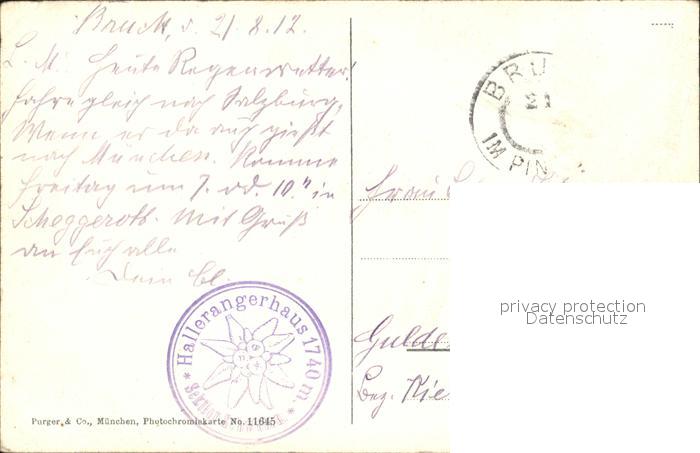 Bruck, d. 21.8.12.
L. M. Heute Regenwetter!
Fahre gleich nach Salzburg,
Wenn es da auch gießt
nach München. Komme
Freitag um 7. od. 10." in
Scheggerott. Mit Gruß
an Euch alle
Dein
BRU
21
IM PIN
Frau
privacy protection
Datenschutz
Gulde
Bez. Kie
* Hallerangerhaus 1740 m. *
Purger & Co., München, Photochromiekarte No. 11645